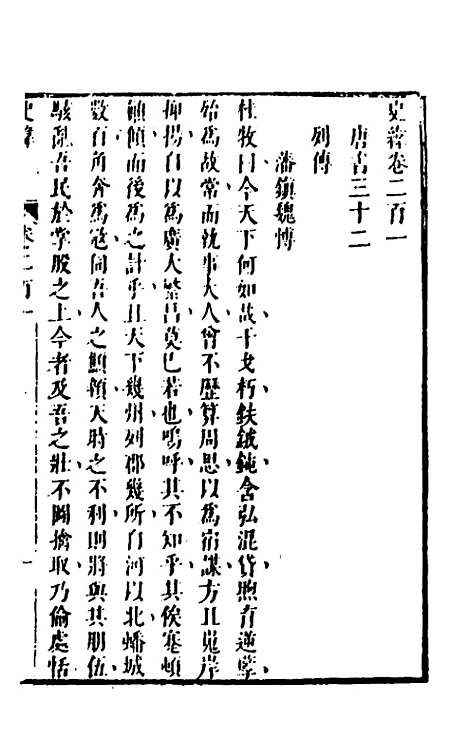 史緯卷二百一
唐書三十二
列傳
藩鎮魏博
杜牧曰今天下何如哉干戈朽鈇鉞鈍含弘混貸煦育逆孽
殆為故常而執事大人曾不歷算周思以為宿謀方且嵬岸
抑揚自以為廣大繁昌莫已若也嗚呼其不知乎其俟蹇頓
顛傾而後為之計乎且天下幾州列郡幾所自河以北蟠城
數百角奔為寇伺吾人之顦顇天時之不利則將與其朋伍
駭亂吾民於掌股之上今者及吾之壯不圖擒取乃偷處恬
史緯
卷二百一
一